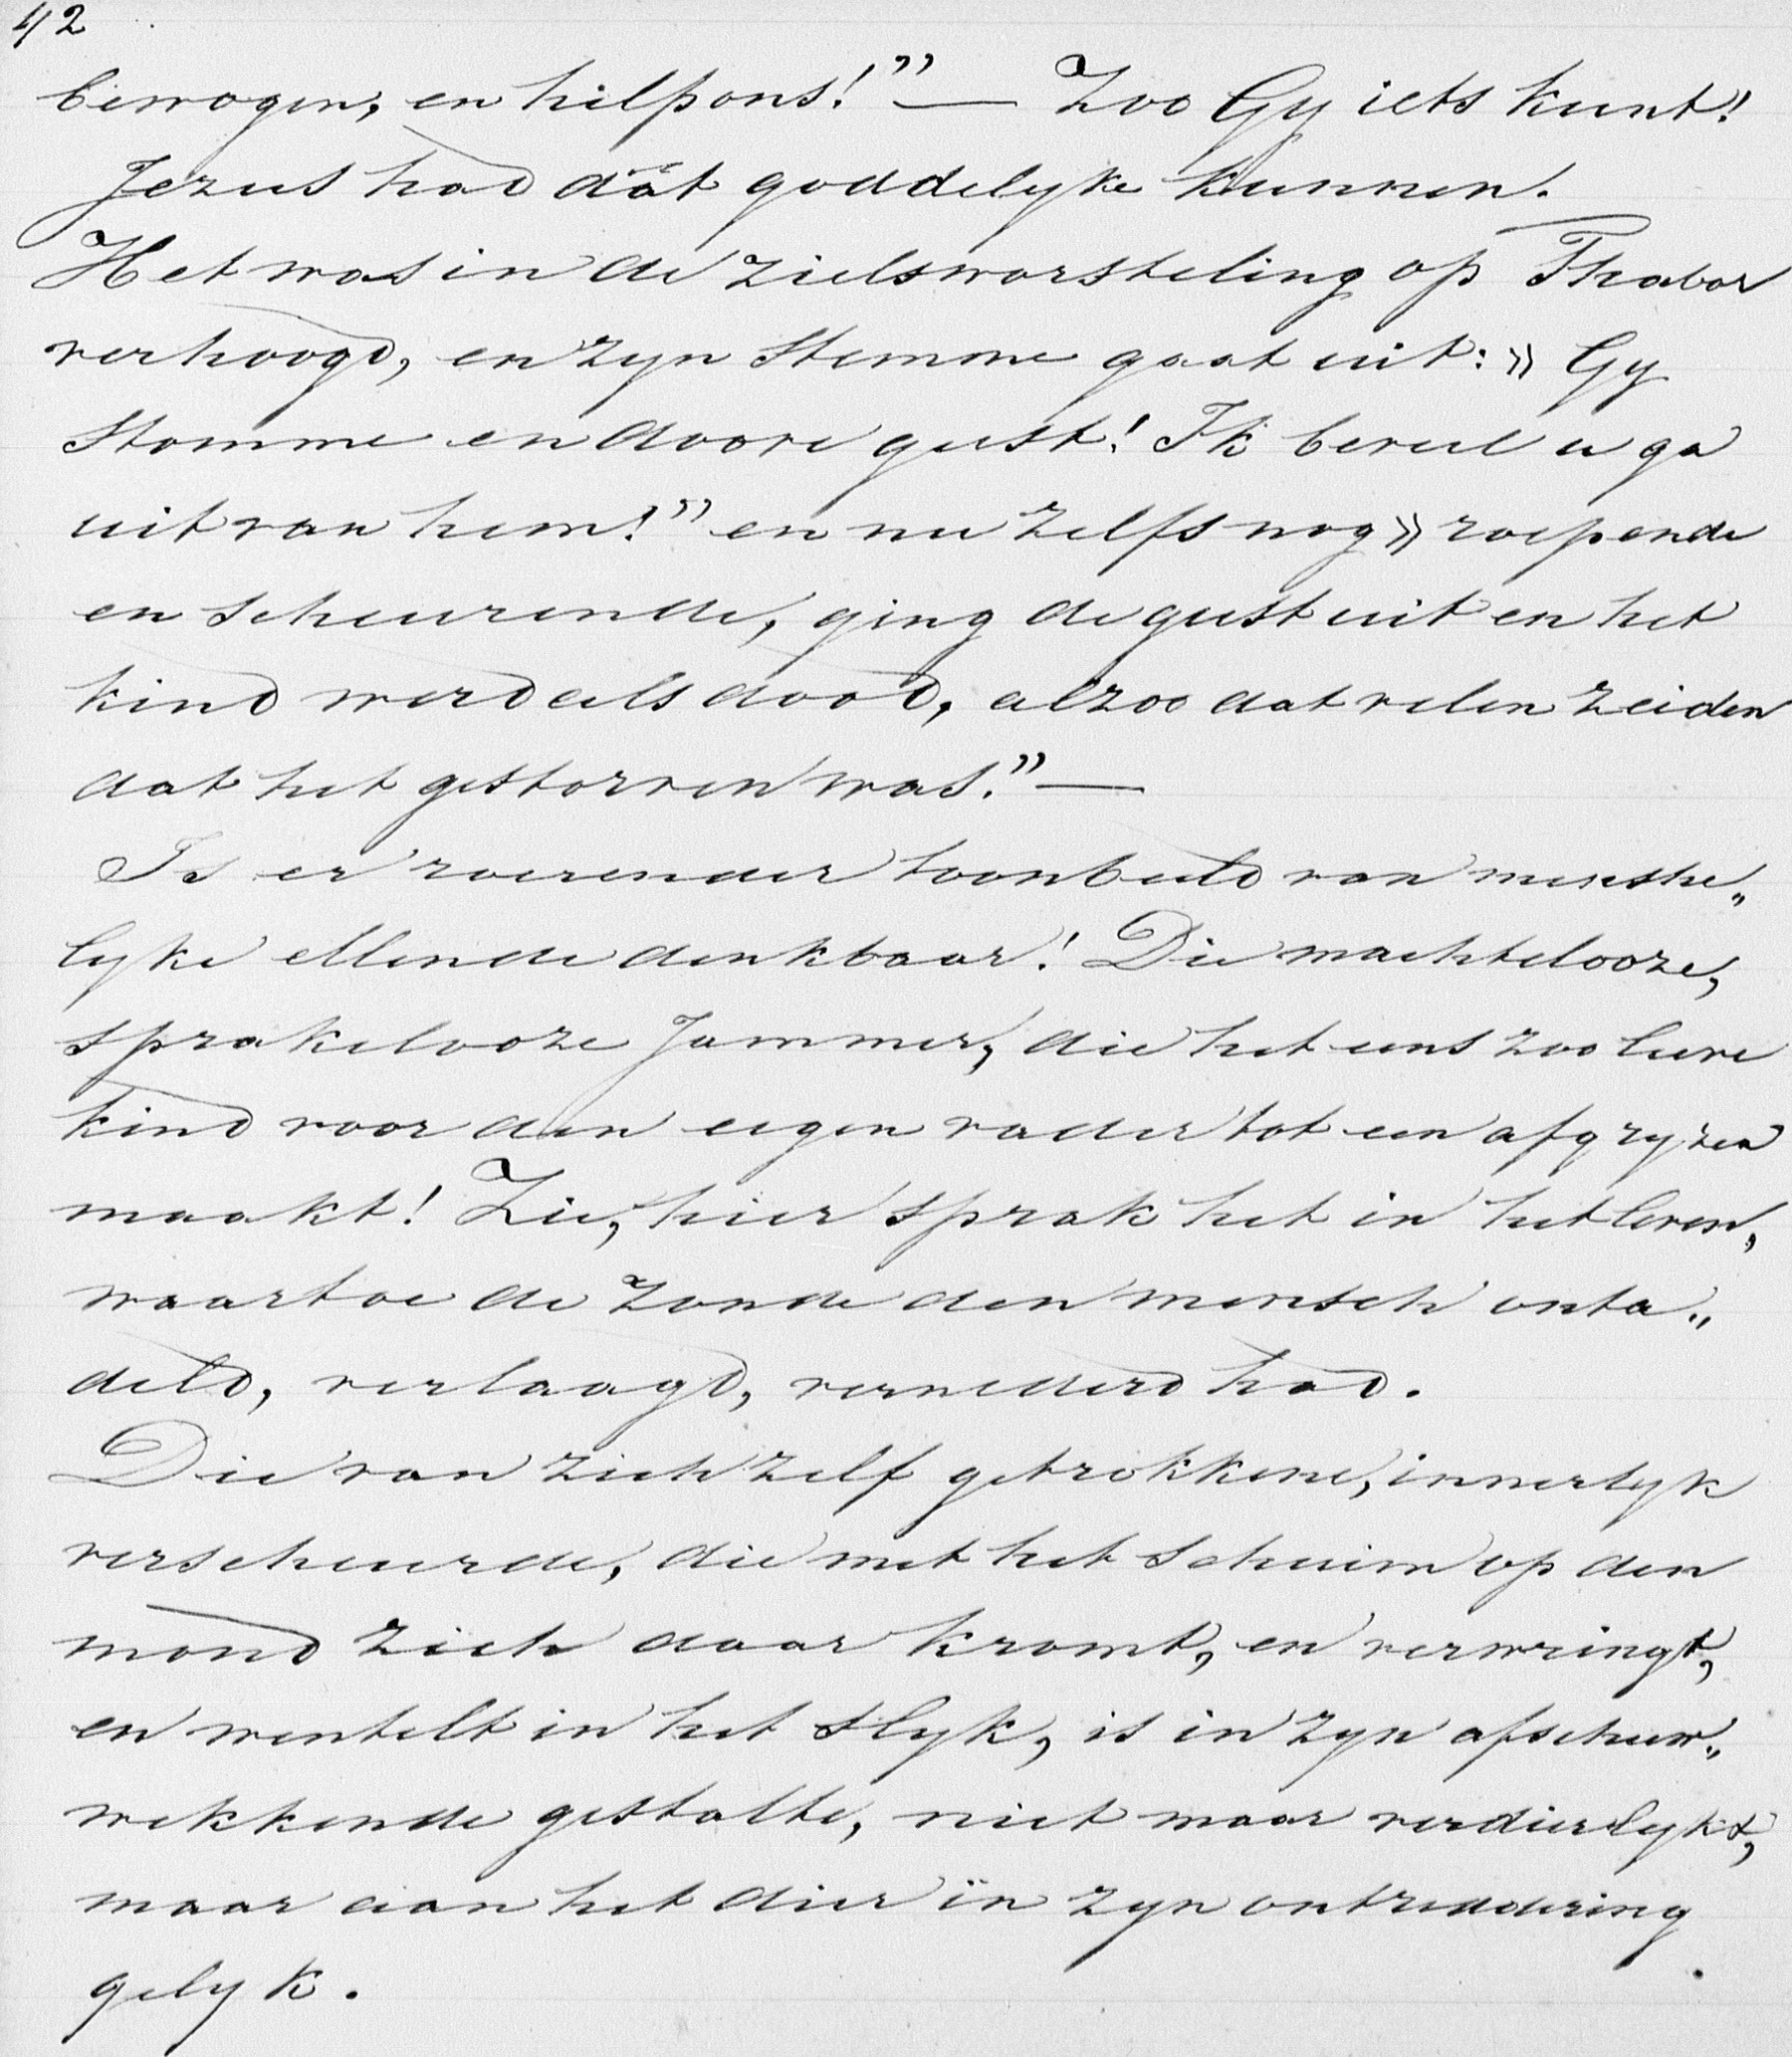 42
bewogen, en help ons!" — Zoo Gy iets kunt!
Jezus had dát goddelyke kunnen.
Het was in de zielsworsteling op Thabor
verhoogd, en zyn stemme gaat uit: » Gy
stomme en doove geest! Ik beveel u ga
uit van hem!" en nu zelfs nog » roepende
en scheurende, ging de geest uit en het
kind werd als dood, alzoo dat velen zeiden
dat het gestorven was." —
Is er roerender toonbeeld van mensche„
lyke ellende denkbaar! Die machtelooze,
sprakelooze jammer, die het eens zoo lieve
kind voor den eigen vader tot een afgryzen
maakt! Zie, hier sprak het in het leven,
waartoe de zonde den mensch onta„
deld, verlaagd, vernederd had.
Die van zich zelf getrokkene, innerlyk
verscheurde, die met het schuim op den
mond zich daar kromt, en verwringt,
en wentelt in het slyk, is in zyn afschuw„
wekkende gestalte, niet maar verdierlykt,
maar aan het dier in zyn ontreddering
gelyk.